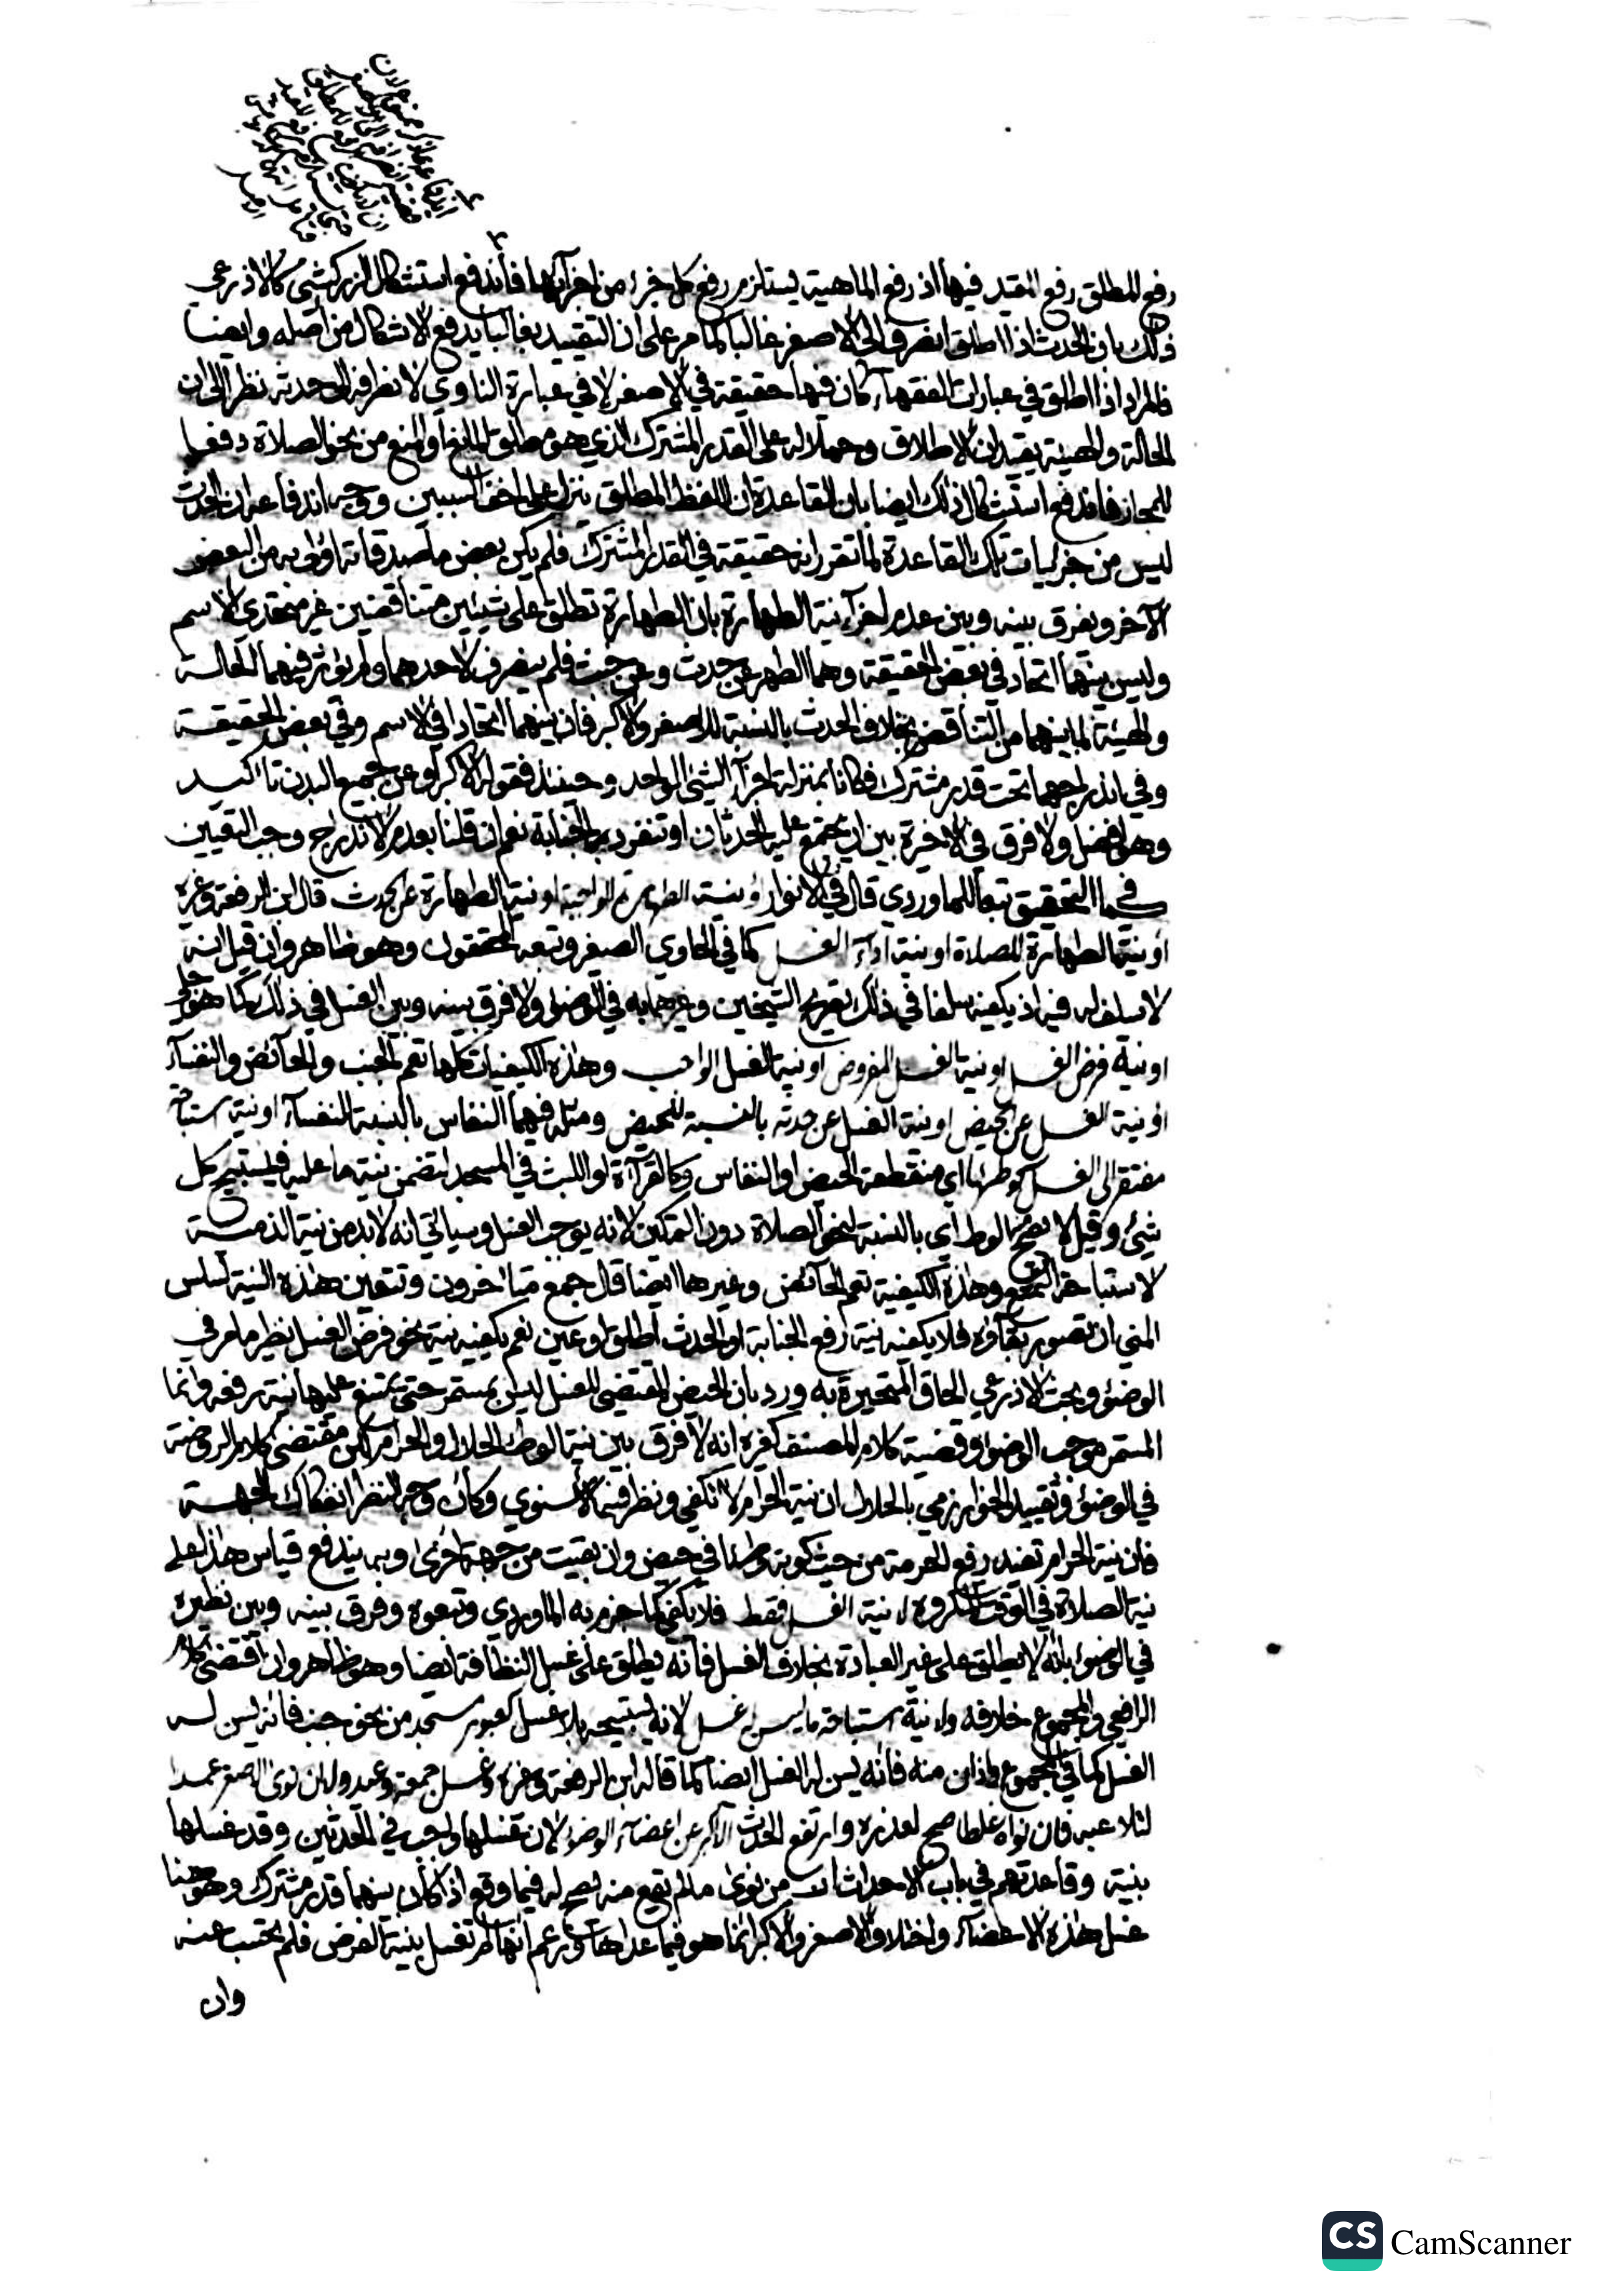 رفع المطلق رفع المقيد فيها اذ رفع الماهية يستلزم رفع كل جزء من اجزآئها فاندفع استشكال الزركشي كالاذرعي
ذلك بان الحدث اذا اطلق انصرف الى الاصغر غالبا كما مر على ان التقييد بغالبا يدفع الاشكال من اصله وايضا
فالمراد اذا اطلق في عبارات الفقهآء كان فيها حقيقة في الاصغر لا في عبارة الناوي لانصرافه الى حدثه نظرا الى ان
الحالة والهيئة يقيدان الاطلاق وحملا له على القدر المشترك الذي هو مطلق المانع او المنع من نحو الصلاة دفعا
للمجاز فاندفع استشكال ذلك ايضا بان القاعدة ان اللفظ المطلق ينزل على اخف السببين ووجه اندفاعه ان الحدث
ليس من جزئيات تلك القاعدة لما تقرر انه حقيقة في القدر المشترك فلم يكن بعض ماصدقاته اولى به من البعض
الآخر ويفرق بينه وبين عدم اجزآء نية الطهارة بان الطهارة تطلق على شيئين متناقضين غير متحدي الاسم
وليس بينهما اتحاد في بعض الحقيقة وهما الطهر عن حدث وعن خبث فلم ينصرف لاحدهما ولم يؤثر فيهما الحالة
والهيئة لما بينهما من التناقض بخلاف الحدث بالنسبة للاصغر والاكبر فان بينهما اتحادا في الاسم وفي بعض الحقيقة
وفي اندراجهما تحت قدر مشترك فكانا بمنزلة اجزآء الشئ الواحد وحينئذ فقوله الاكبر او عن جميع البدن تاكيد
وهو افضل ولا فرق في الاخيرة بين ان يجتمع عليه الحدثان او تنفرد به الجنابة نعم ان قلنا بعدم الاندراج وجب التعيين
كما في التحقيق تبعا للماوردي قال في الانوار ونية الطهارة الواجبة او نية الطهارة عن حدث قال ابن الرفعة وغيره
او نية الطهارة للصلاة او نية ادآء الغسل كما في الحاوي الصغير وتبعه المحققون وهو ظاهر وان قيل انه
لا سلف له فيه اذ يكفيه سلفا في ذلك تصريح الشيخين وغيرهما به في الوضوء ولا فرق بينه وبين الغسل في ذلك كما هو جلي
او نية فرض الغسل او نية الغسل المفروض او نية الغسل الواجب وهذه الكيفيات كلها تعم الجنب والحآئض والنفسآء
او نية الغسل عن الحيض او نية الغسل عن حدثه بالنسبة للحيض ومثله فيهما النفاس بالنسبة للنفسآء او نية استباحة
مفتقر الى الغسل كوطئها اي منقطعة الحيض او النفاس وكالقرآءة او اللبث في المسجد لتضمن نية ما عليه فيستبيح كل
شئ وقيل لا يصح الوطء اي بالنسبة لنحو الصلاة دون التمكين لانه يوجب الغسل وسياتي انه لابد من نية الذمية
لاستباحة التمتع وهذه الكيفية تعم الحآئض وغيرها ايضا قال جمع متاخرون وتتعين هذه النية لسلس
المني ان تصور بقآؤه فلا يكفيه نية رفع الجنابة او الحدث اطلق او عين نعم يكفيه نية نحو فرض الغسل نظير ما مر في
الوضوء وبحث الاذرعي الحاق المتحيرة به ورد بان الحيض المقتضي للغسل ليس بمستمر حتى يمتنع عليها نية رفعه وانما
المستمر موجب الوضوء وقضية كلام المصنف كغيره انه لا فرق بين نية الوطئ الحلال والحرام لكن مقتضى كلام الروضة
في الوضوء وتقييد الخوارزمي بالحلال ان نية الحرام لا تكفي ونظر فيه الاسنوي وكأن وجه النظر انفكاك الجهة
فان نية الحرام تفيد رفع الحرمة من حيث كونه وطئا في حيض وان بقيت من جهة اخرى وبه يندفع قياس هذا على
نية الصلاة في الوقت المكروه لا نية الغسل فقط فلا يكفي كما جزم به الماوردي وتبعوه وفرق بينه وبين نظيره
في الوضوء بانه لا يطلق على غير العبادة بخلاف الغسل فانه يطلق على غسل النظافة ايضا وهو ظاهر وان اقتضى كلام
الرافعي والمجموع خلافه ولا نية استباحة ما ليس له غسل لانه يستبيحه بلا غسل كعبور مسجد من نحو جنب فانه ليس له
الغسل كما في المجموع واذان منه فانه يسن له الغسل ايضا كما قاله ابن الرفعة وغيره وغسل جمعة وعيد ولا ان نوى الاصغر عمدا
لتلاعبه فان نواه غلطا صح لعذره وارتفع الحدث الاكبر عن اعضآء الوضوء لان غسلها واجب في الحدثين وقد غسلها
بنيته وقاعدتهم في باب الاحداث ان من نوى ما لم يقع منه يصح له فيما وقع اذا كان بينهما قدر مشترك وهو هنا
غسل هذه الاعضآء واختلاف الاصغر والاكبر انما هو فيما عداها وزعم انها لم تغسل بنية الفرض فلم يحتسب عنه
وان
CS CamScanner